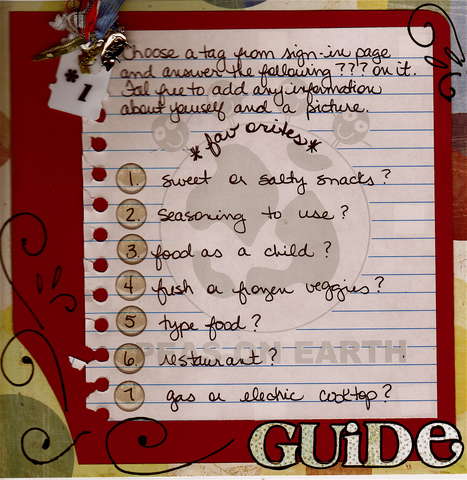 Choose a tag from sign-in page
and answer the following ??? on it.
Feel free to add any information
about yourself and a picture.
*1
*favorites*
1. sweet or salty snacks?
2. seasoning to use?
3. food as a child?
4. fresh or frozen veggies?
5 type food?
6. restaurant?
7 gas or electric cooktop?
PEAS ON EARTH
GUiDe